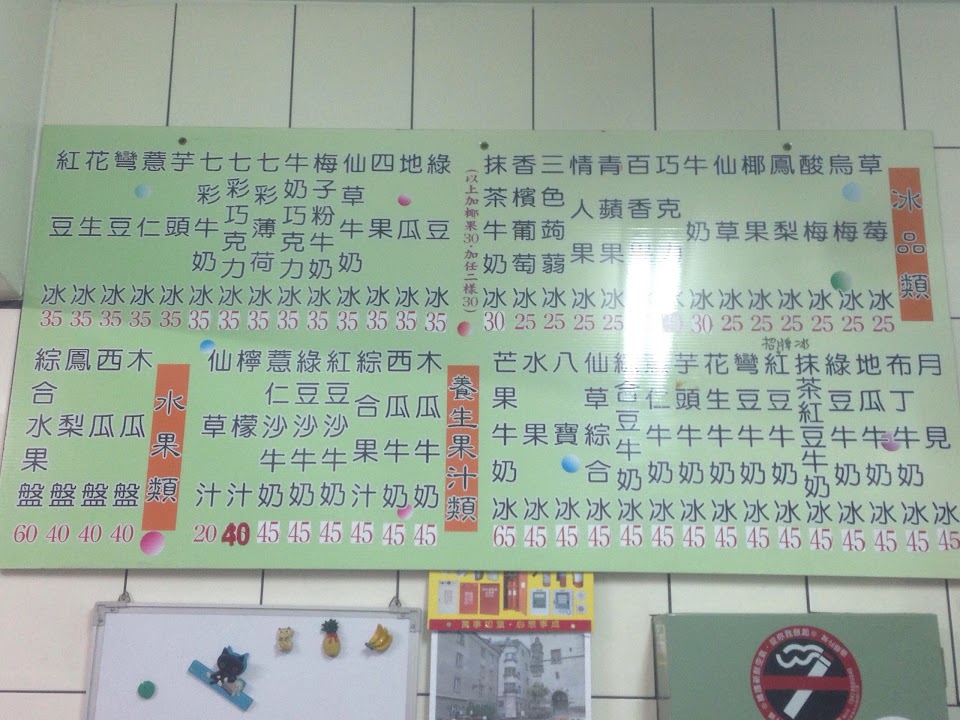 冰品類
草莓冰 25
烏梅冰 25
酸梅冰 25
鳳梨冰 25
椰果冰 25
仙草冰 25
牛奶冰 30
巧克
百香果冰
青蘋果冰 25
情人果冰 25
三色蒟蒻冰 25
香檳葡萄冰 25
抹茶牛奶冰 30
(以上加椰果30·加任二樣30)
綠豆冰 35
地瓜冰 35
四果冰 35
仙草牛奶冰 35
梅子粉牛奶冰 35
牛奶巧克力冰 35
七彩薄荷冰 35
七彩巧克力冰 35
七彩牛奶冰 35
芋頭冰 35
薏仁冰 35
彎豆冰 35
花生冰 35
紅豆冰 35
招牌冰
月見冰 45
布丁牛奶冰 45
地瓜牛奶冰 45
綠豆牛奶冰 45
抹茶紅豆牛奶冰 45
紅豆牛奶冰 45
彎豆牛奶冰 45
花生牛奶冰 45
芋頭牛奶冰 45
薏仁牛奶冰 45
綜合豆牛奶冰 45
仙草綜合冰 45
八寶冰 45
水果冰 45
芒果牛奶冰 65
養生果汁類
木瓜牛奶 45
西瓜牛奶 45
綜合果汁 45
紅豆沙牛奶 45
綠豆沙牛奶 45
薏仁沙牛奶 45
檸檬汁 40
仙草汁 20
水果類
木瓜盤 40
西瓜盤 40
鳳梨盤 40
綜合水果盤 60
萬事如意·心想事成